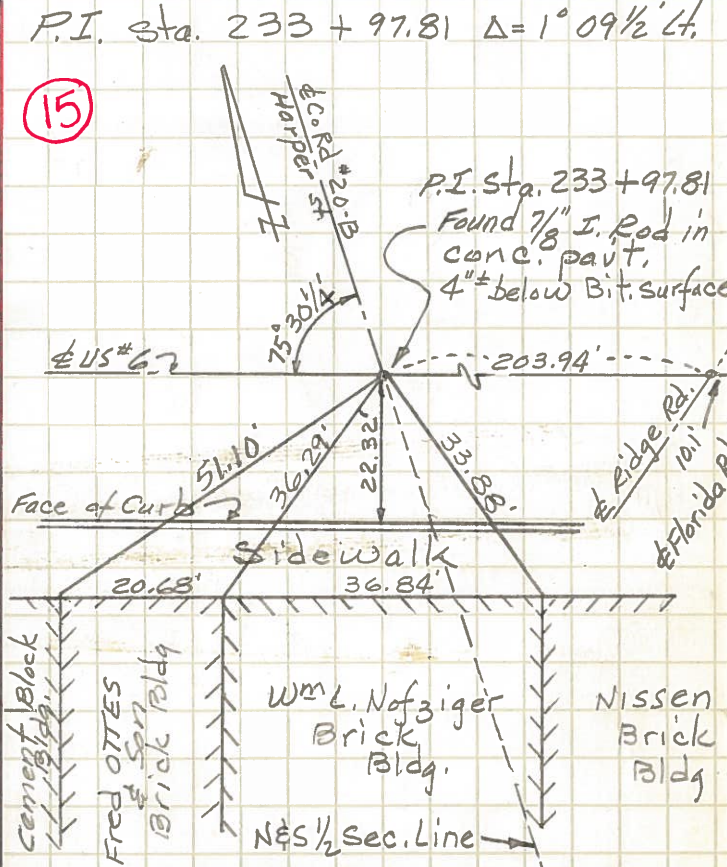 P.I. Sta. 233 + 97.81 Δ= 1° 09½' Lt.
15
℄ Co. Rd #20-B
Harper St
P.I. Sta. 233 + 97.81
Found 7/8" I. Rod in
conc. pav't.
4"± below Bit. surface
75° 30¼'
℄ US #6
203.94'
51.10'
36.29'
22.32'
33.88'
℄ Ridge Rd.
10.1'
℄ Florida
Face of Curb
Sidewalk
20.68'
36.84'
Cement Block
Bldg.
Fred OTTES
& Son
Brick Bldg
Wm L. Nofziger
Brick
Bldg.
Nissen
Brick
Bldg
N&S ½ Sec. Line